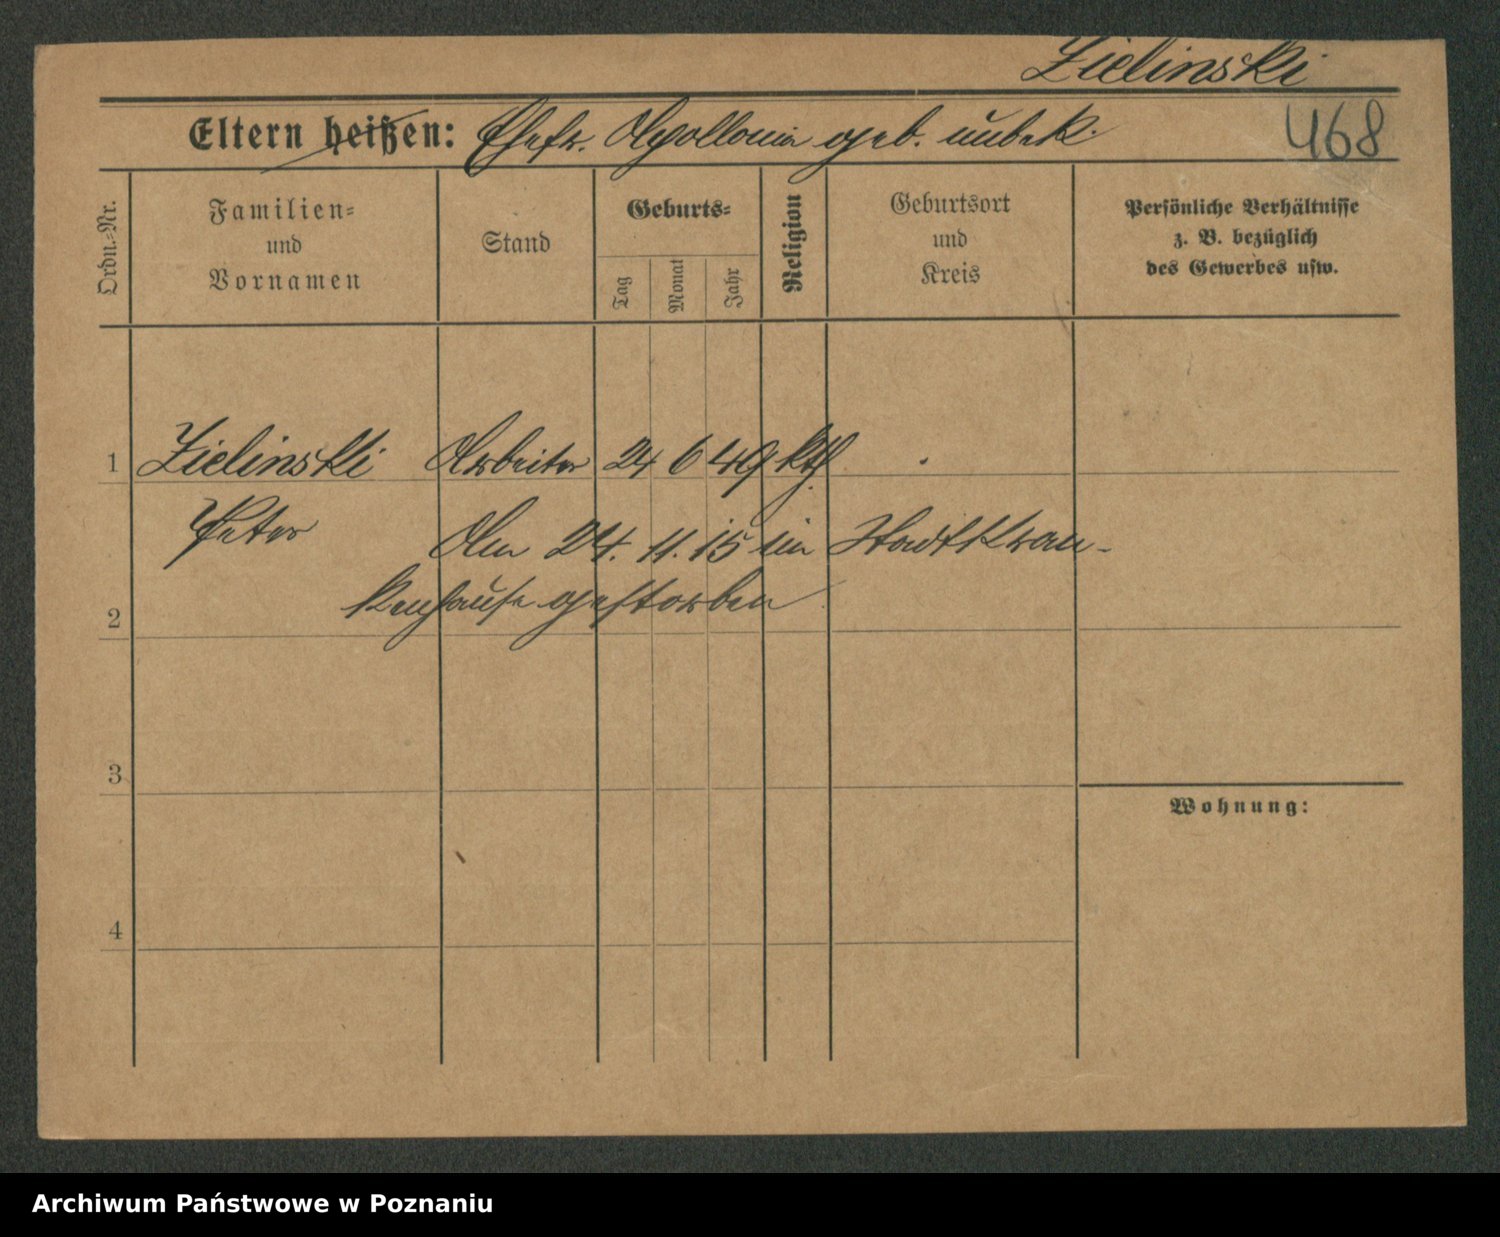 Zielinski
Eltern heißen: Ehefr. Apollonia geb. unbek.
468
Ordn.-Nr.
Familien-
und
Vornamen
Stand
Geburts-
Tag
Monat
Jahr
Religion
Geburtsort
und
Kreis
Persönliche Verhältnisse
z. B. bezüglich
des Gewerbes usw.
1 Zielinski Arbeiter 24 6 49 kth.
Peter Am 24. 11. 15 im Stadtkran-
2 kenhause gestorben
3
Wohnung:
4
Archiwum Państwowe w Poznaniu